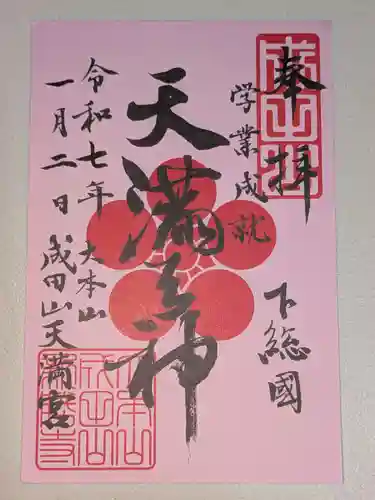 奉拝
学業成就
下総國
天満天神
大本山
成田山天満宮
令和七年
一月二日